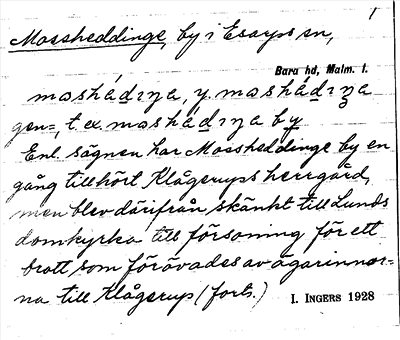 1
Mossheddinge, by i Esarps sn,
Bara hd, Malm. l.
moshédıŋa, y. moshédıŋa
gen=, t. ex. moshédıŋa by
Enl. sägnen har Mossheddinge by en
gång tillhört Klågerups herrgård,
men blev därifrån skänkt till Lunds
domkyrka till försoning för ett
brott som förövades av ägarinnor=
na till Klågerup (forts.)
I. INGERS 1928